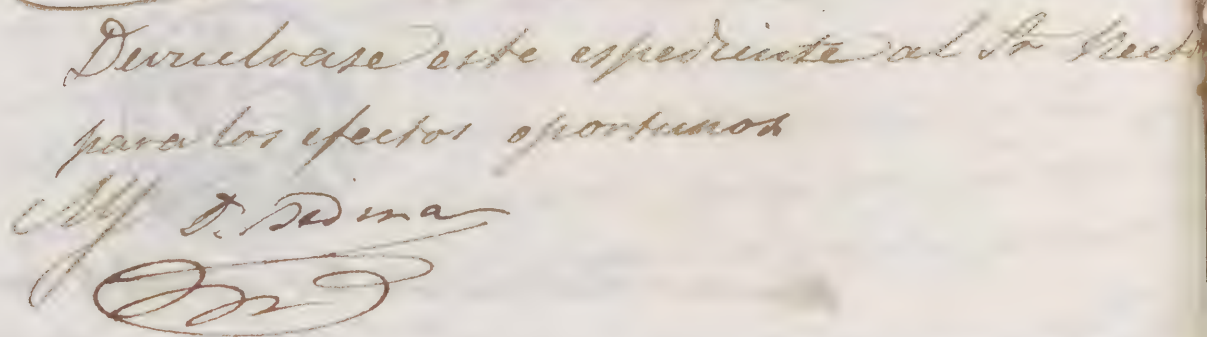 Devuelvase este espediente al Sr Rect
para los efectos oportunos
D.